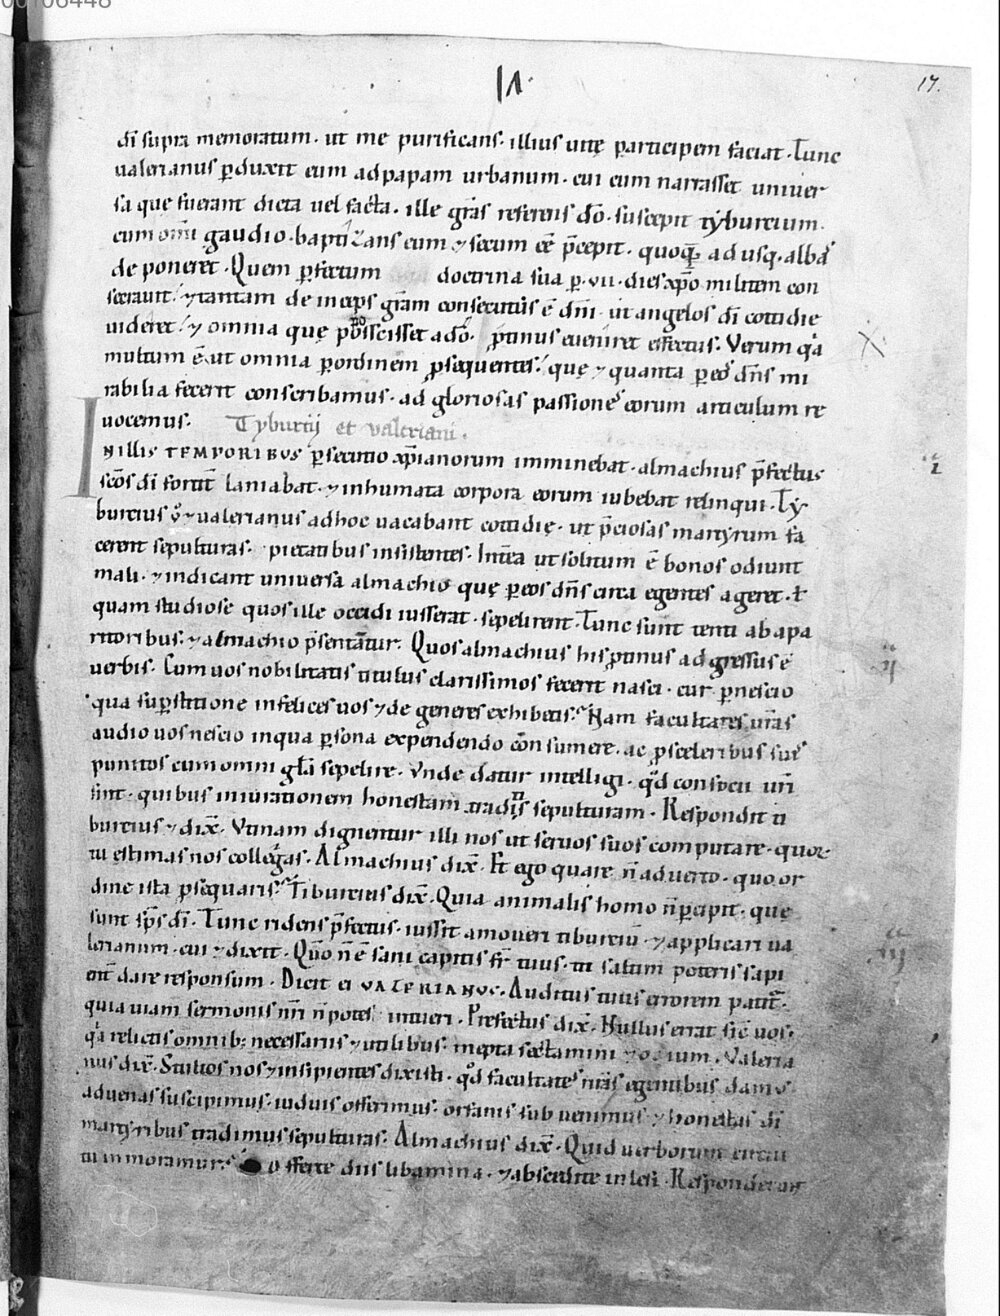 00106448
17.
dī supra memoratum. ut me purificans. illius uitę participem faciat. Tunc
ualerianus ꝑduxit eum ad papam urbanum. cui cum narrasset uniuer
sa que fuerant dicta uel facta. ille gr̄as referens dō. suscepit tyburcium.
cum omī gaudio. baptizans eum ⁊ secum eē p̄cepit. quoꝗ ad usq. albas
de poneret. Quem ꝑfectum doctrina sua ꝑ .vii. dies xp̄o militem con
secrauit. ⁊ tantam de inceps gr̄am consecutus ē dn̄i. ut angelos dī cottidie
uideret. ⁊ omnia quę poposcisset a dō. ꝓtinus eueniret effectus. Verum qa
multum ē ut omnia ꝑ ordinem ꝓsequentes. quę ⁊ quanta ꝑ eos dn̄s mi
rabilia fecerit conscribamus. ad gloriosas passiones eorum articulum re
uocemus. Tyburtij et valeriani.
IN ILLIS TEMPORIBUS ꝑsecutio xp̄ianorum imminebat. almachius p̄fectus
sc̄os dī fortit laniabat. ⁊ inhumata corpora eorum iubebat relinqui. Ty
burcius ⁊ ualerianus ad hoc uacabant cottidię. ut p̄ciosas martyrum fa
cerent sepulturas. pietatibus insistentes. Int̄ea ut solitum ē bonos odiunt
mali. ⁊ indicant uniuersa almachio quę ꝑ eos dn̄s circa egentes ageret. ł
quam studiose quos ille occidi iusserat. sepelirent. Tunc sunt tenti ab apa
ritoribus. ⁊ almachio p̄sentātur. Quos almachius his ꝓtinus adgressus ē
uerbis. Cum uos nobilitatis titulus clarissimos fecerit nasci. cur ꝑ nescio
qua suꝑstitione infelices uos ⁊ de generes exhibetis. Nam facultates ur̄as
audio uos nescio in qua ꝑsona expendendo con sumere. ac ꝓ sceleribus suis
punitos cum omni gl̄a sepelire. Vnde datur intelligi. qd consocii ur̄i
sint. quibus in iurationem honestam traditis sepulturam. Respondit ti
burcius ⁊ dix̄. Vtinam dignentur illi nos ut seruos suos computare. quor
tu estimas nos collegas. Almachius dix̄. Et ego quare n̄ aduerto. quo or
dine ista ꝑsequaris. Tiburcius dix̄. Quia animalis homo n̄ ꝑcipit. que
sunt sp̄s dī. Tunc ridens p̄fectus. iussit amoueri tiburciū. ⁊ applicari ua
lerianum. cui ⁊ dixit. Qūo n̄ ē sani capitis fr̄ tuus. tu saltim poteris sapi
ent dare responsum. Dicit ei VALERIANUS. Auditus tuus errorem patit̄.
quia uiam sermonis nr̄i n̄ potes intueri. Prefectus dix̄. Nullus errat sic uos.
qa relictis omnib; necessariis ⁊ utilibus. inepta sectamini ⁊ ocium. Valeria
nus dix̄. Stultos nos ⁊ insipientes dixisti. qd facultates nr̄as egentibus damus.
aduenas suscipimus. uiduis offerimus. orfanis sub uenimus. ⁊ honestas dī
martyribus tradimus sepulturas. Almachius dix̄. Quid uerborum circui
tu inmoramur. offerte diis libamina. ⁊ abscedite inlesi. Responderunt